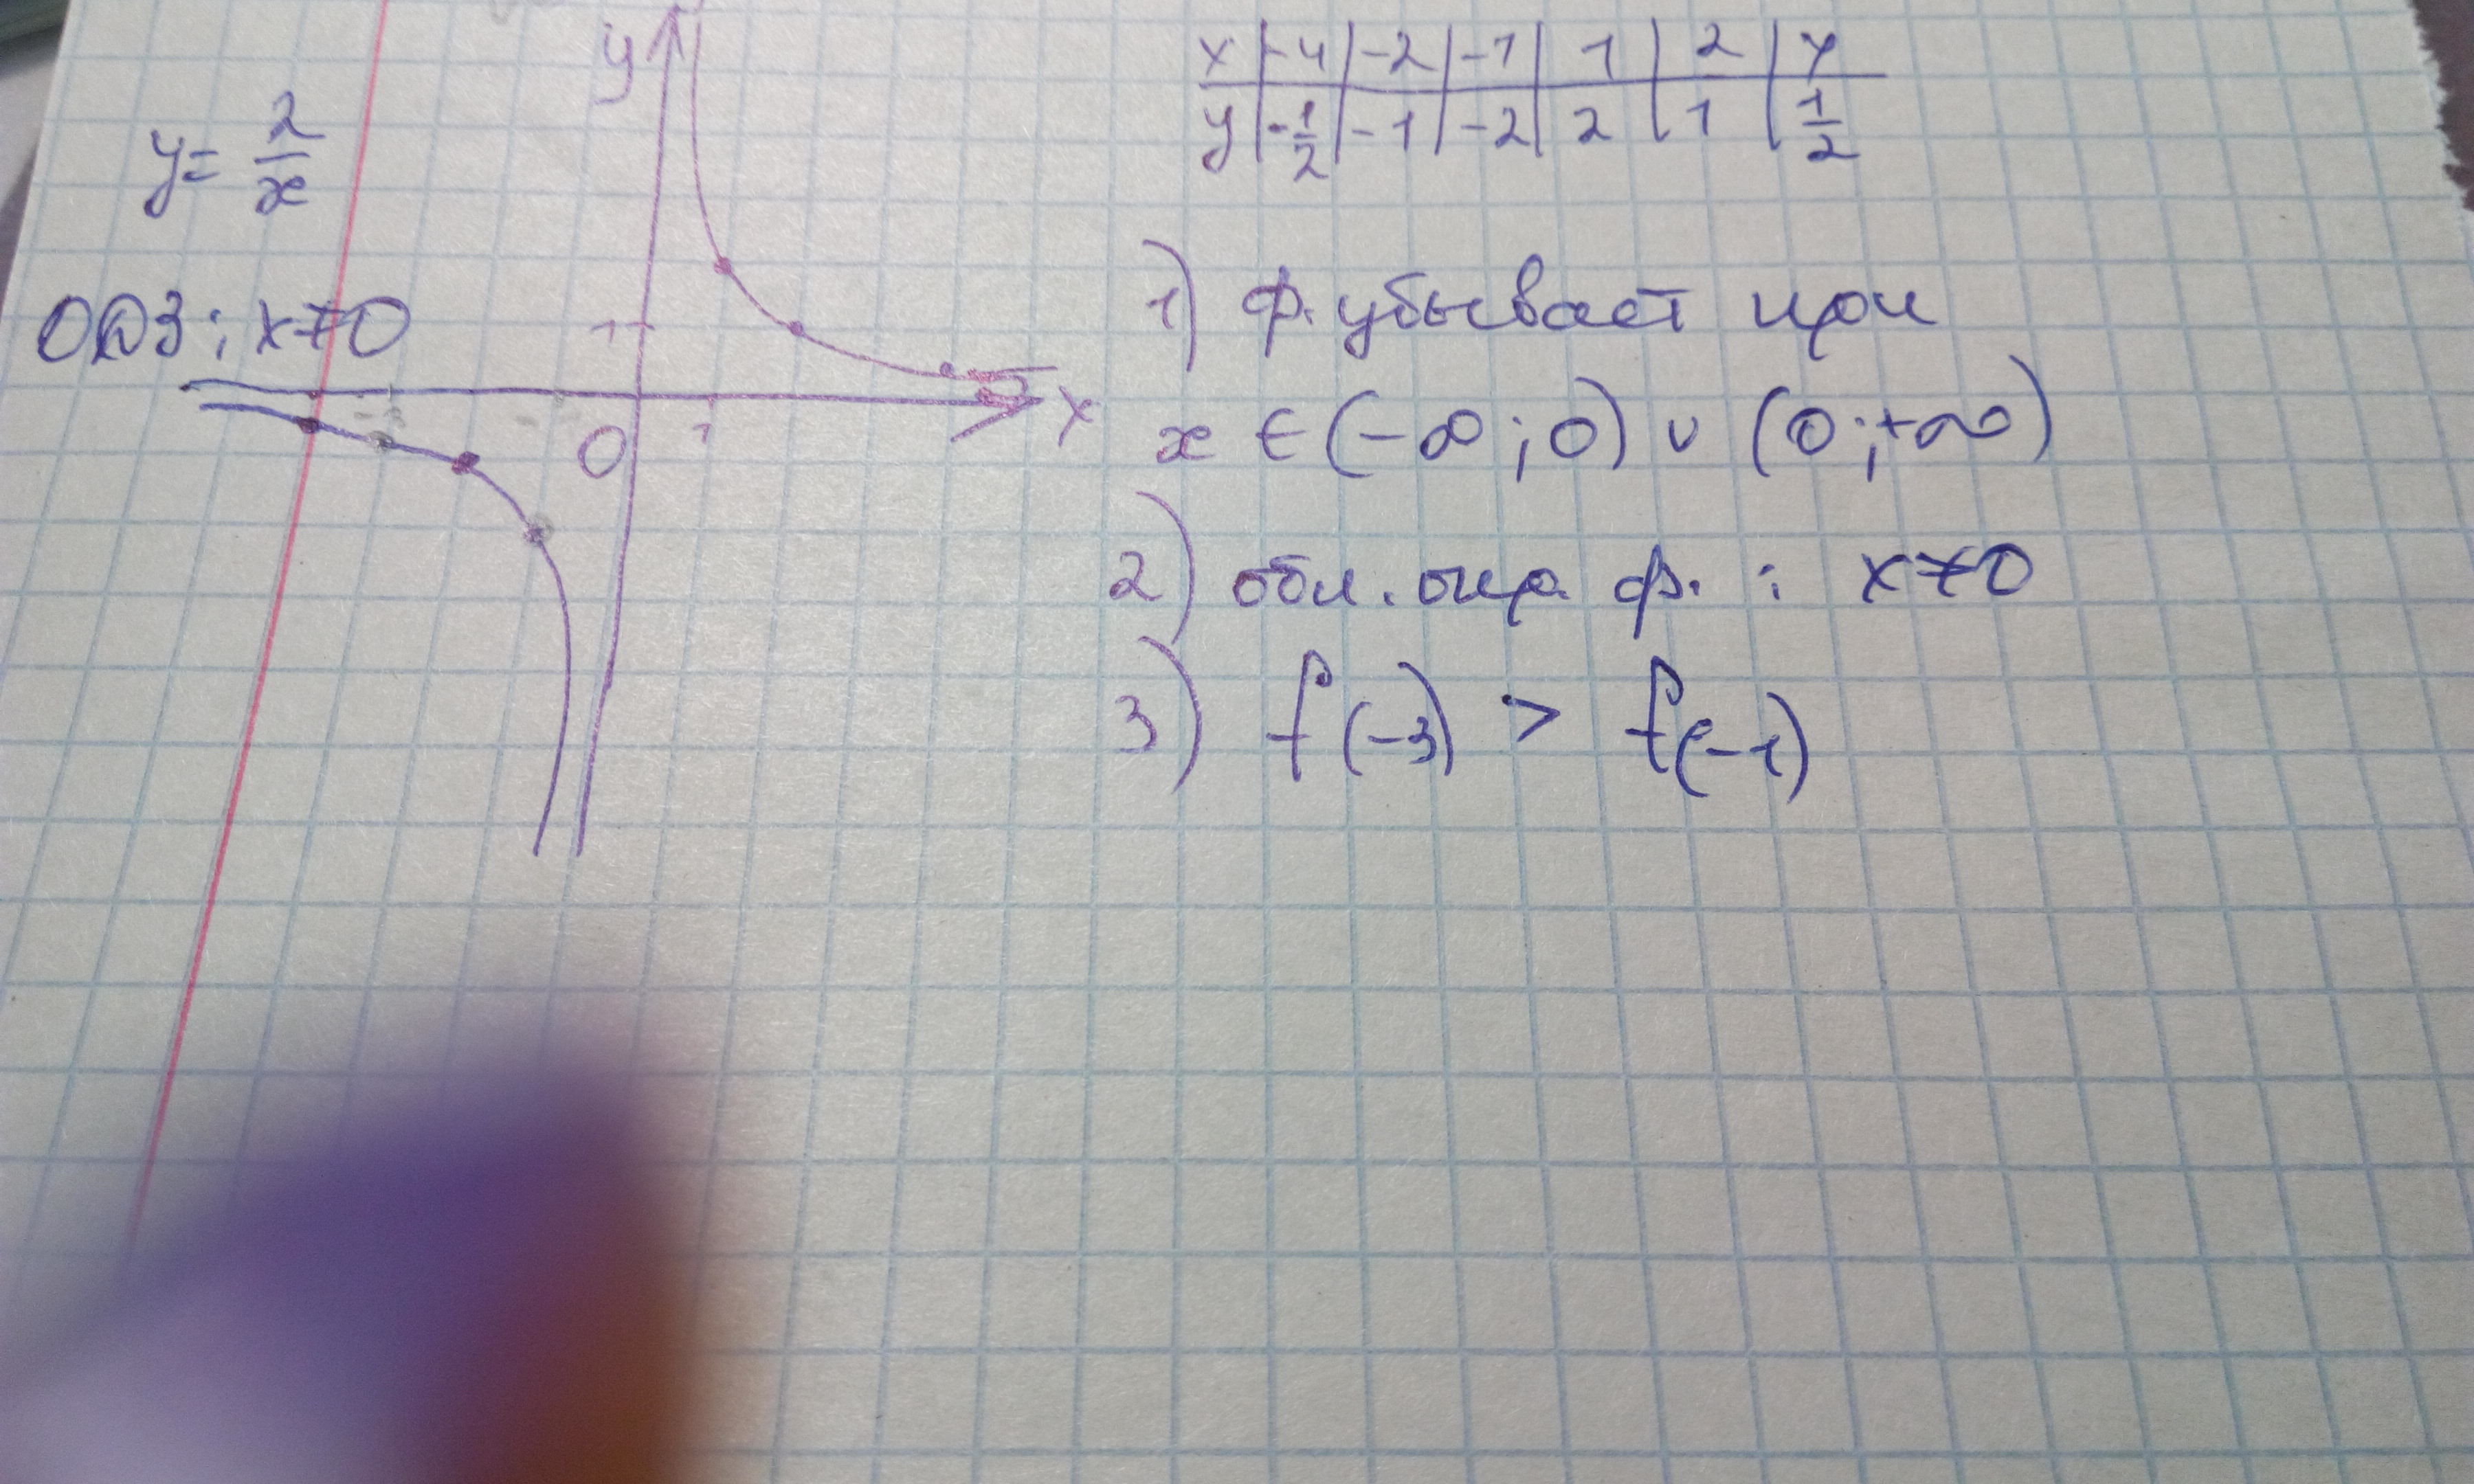 y = 2/x
ОДЗ: x≠0
y
1
-3
0
1
x
x | -4 | -2 | -1 | 1 | 2 | 4
y | -1/2 | -1 | -2 | 2 | 1 | 1/2
1) ф. убывает при
x ∈ (-∞;0) ∪ (0;+∞)
2) обл. опр. ф. : x≠0
3) f(-3) > f(-1)